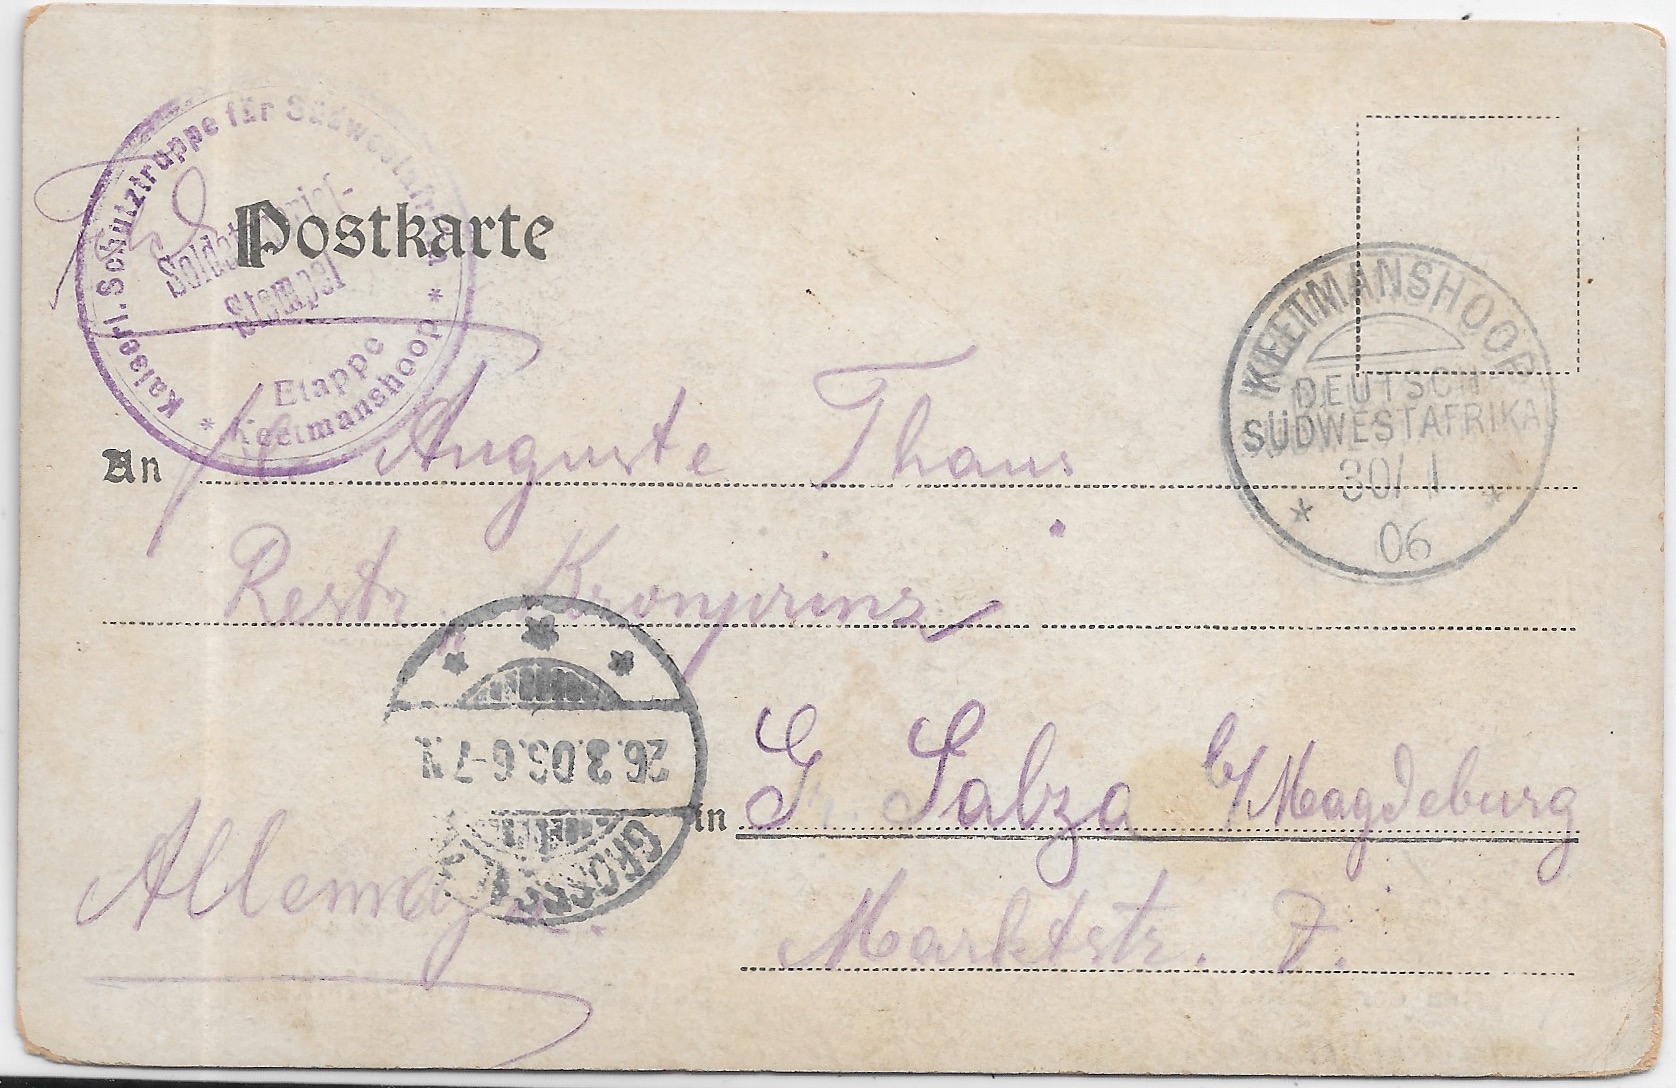 Kaiserl. Schutztruppe für Südwestafrika
Soldatenbrief-
Stempel
* Etappe *
Keetmanshoop
Postkarte
KEETMANSHOOP
DEUTSCH-
SÜDWESTAFRIKA
* 30/1 *
06
An Auguste Thaus
Restr. Kronprinz
26.3.06.6-7N.
in Gr. Salza b/Magdeburg
Allemagne.
Marktstr. 7.